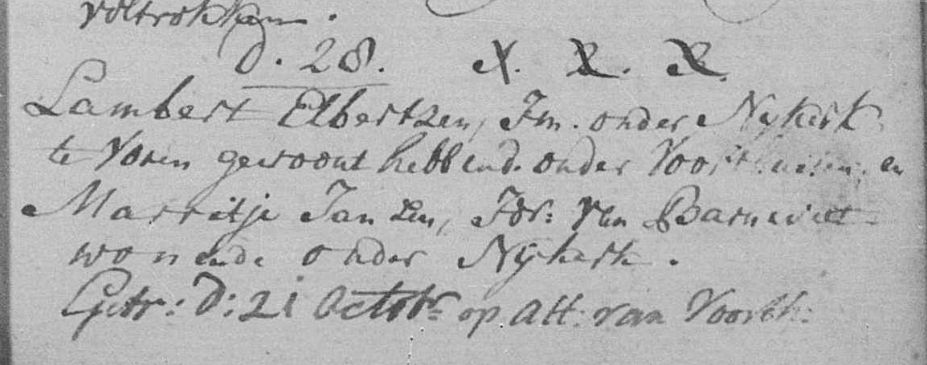 voltrokken.
D. 28. X. X. X.
Lambert Elbertzen, Jm. onder Nykerk
te voren gewoont hebbende onder Voorthuisen, en
Marritje Janzen, Jdr: van Barnevelt
wonende onder Nykerk.
Getr: D: 21 Octobr: op att: van Voorth: